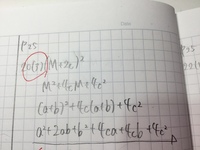 P25
20(7)(M+2c)²
M²+4cM+4c²
(a+b)²+4c(a+b)+4c²
a²+2ab+b²+4ca+4cb+4c²